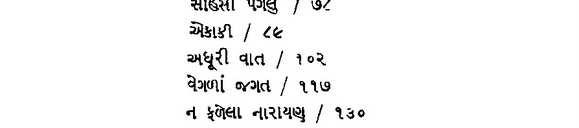 સાહસી પગલું / ૭૮
એકાકી / ૮૯
અધૂરી વાત / ૧૦૨
વેગળાં જગત / ૧૧૭
ન ફળેલા નારાયણ / ૧૩૦